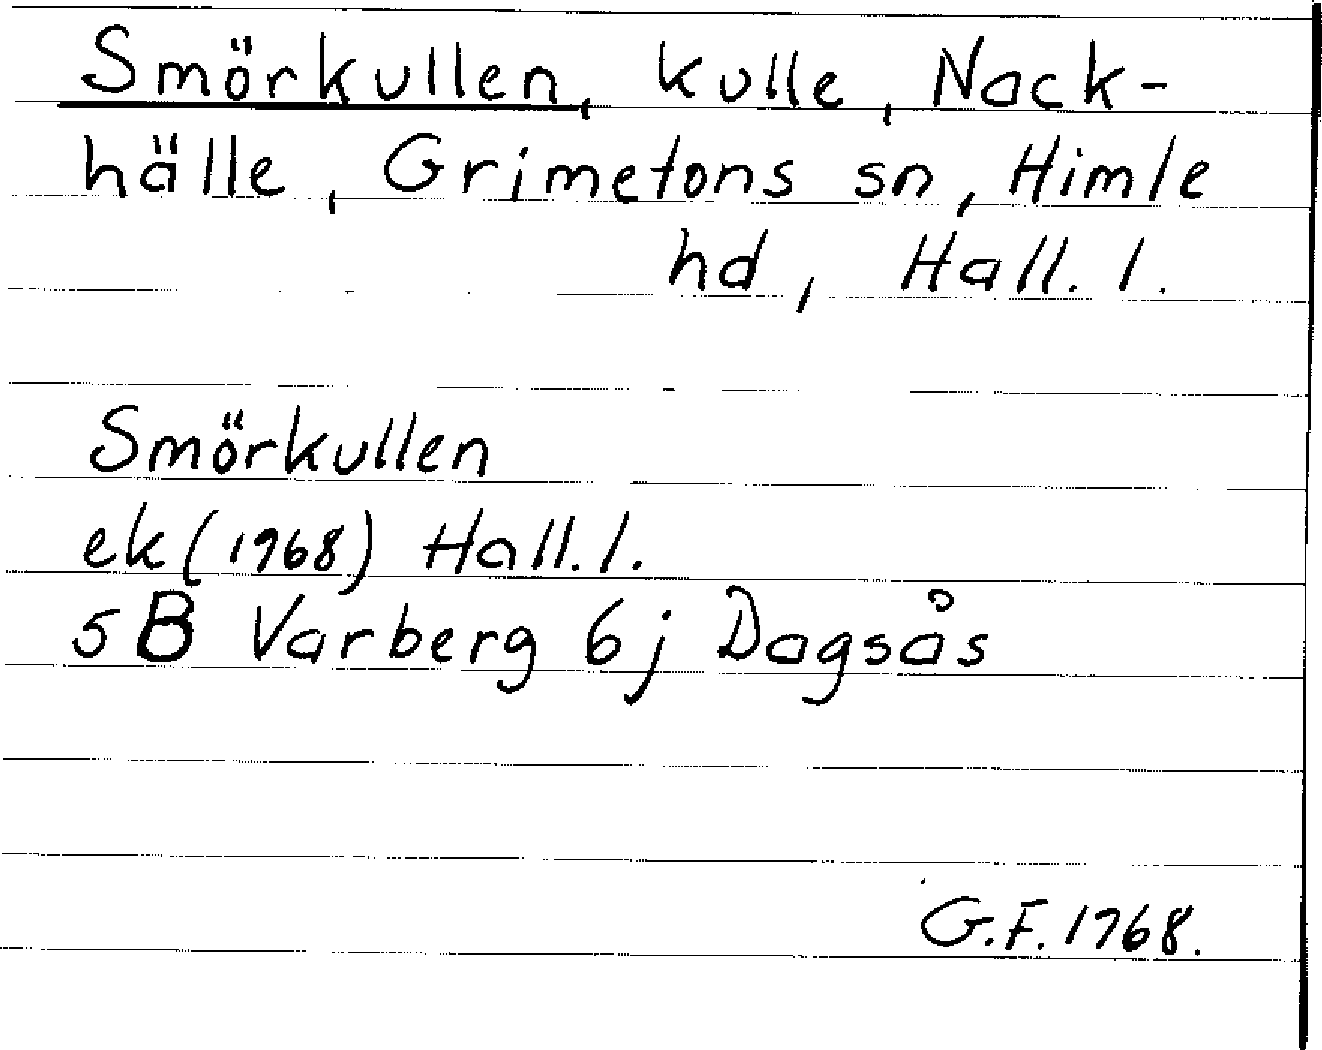 Smörkullen, kulle, Nack-
hälle, Grimetons sn, Himle
hd, Hall. l.
Smörkullen
ek (1968) Hall. l.
5B Varberg 6j Dagsås
G.F. 1968.